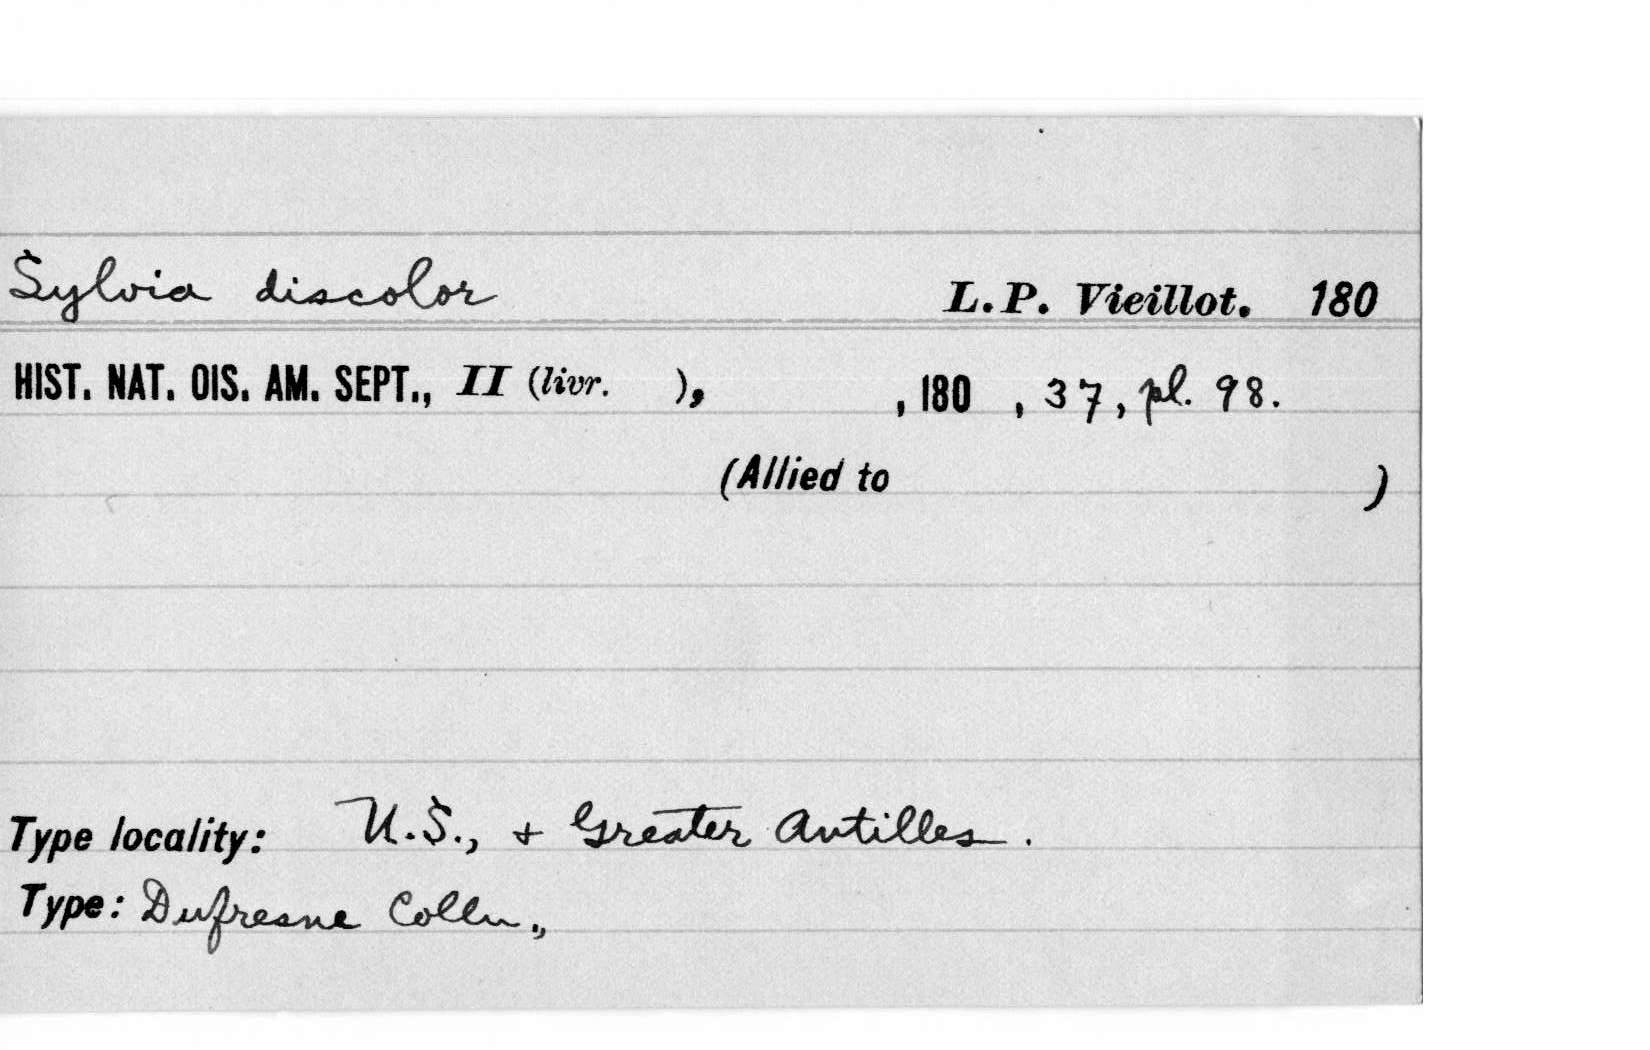 Sylvia discolor L. P. Vieillot. 180
HIST. NAT. OIS. AM. SEPT., II (livr. ), , 180 , 37, pl. 98.
(Allied to )
Type locality: U.S., + Greater Antilles.
Type: Dufresne Colln.,